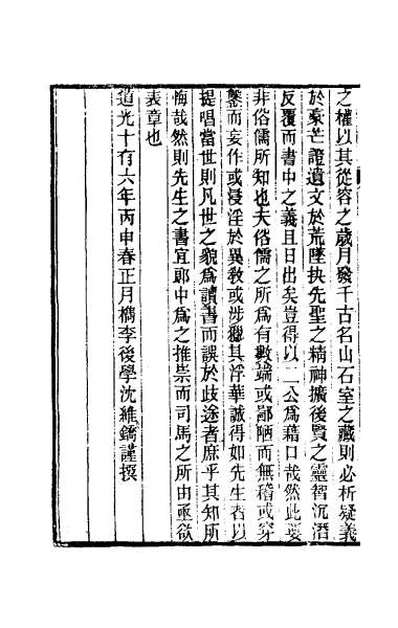 之權以其從容之歲月發千古名山石室之藏則必析疑義
於豪芒證遺文於荒墜抉先聖之精神擴後賢之靈智沉潛
反覆而書中之義且日出矣豈得以二公爲藉口哉然此要
非俗儒所知也夫俗儒之所爲有數端或鄙陋而無稽或穿
鑿而妄作或浸淫於異敎或涉獵其浮華誠得如先生者以
提唱當世則凡世之貌爲讀書而誤於歧途者庶乎其知所
悔哉然則先生之書宜郞中爲之推崇而司馬之所由亟欲
表章也
道光十有六年丙申春正月檇李後學沈維鐈謹撰